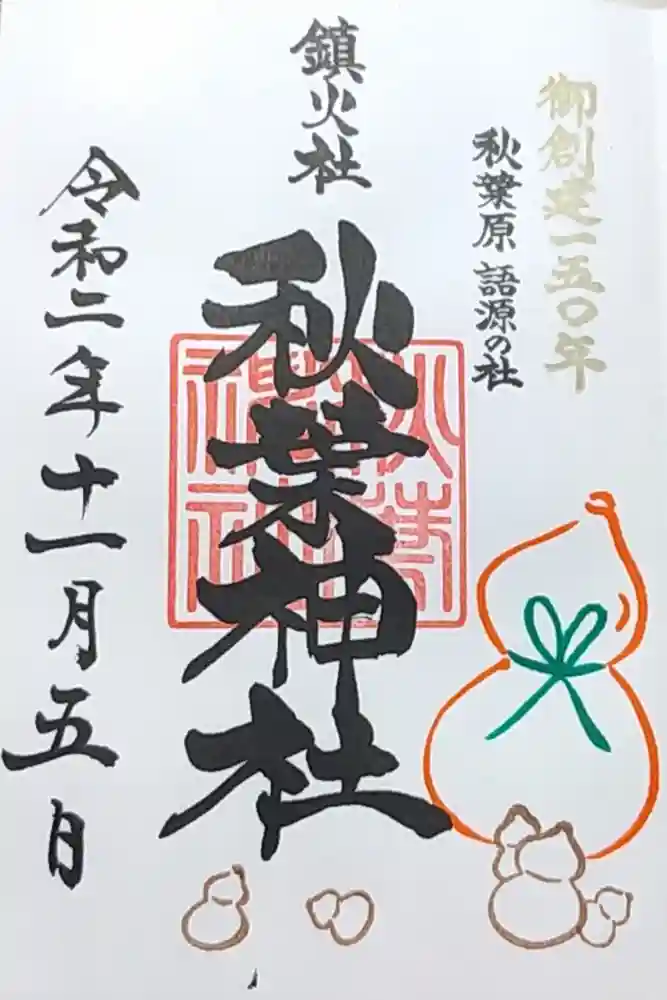 御創建一五〇年
秋葉原 語源の社
鎮火社
秋葉神社
令和二年十一月五日